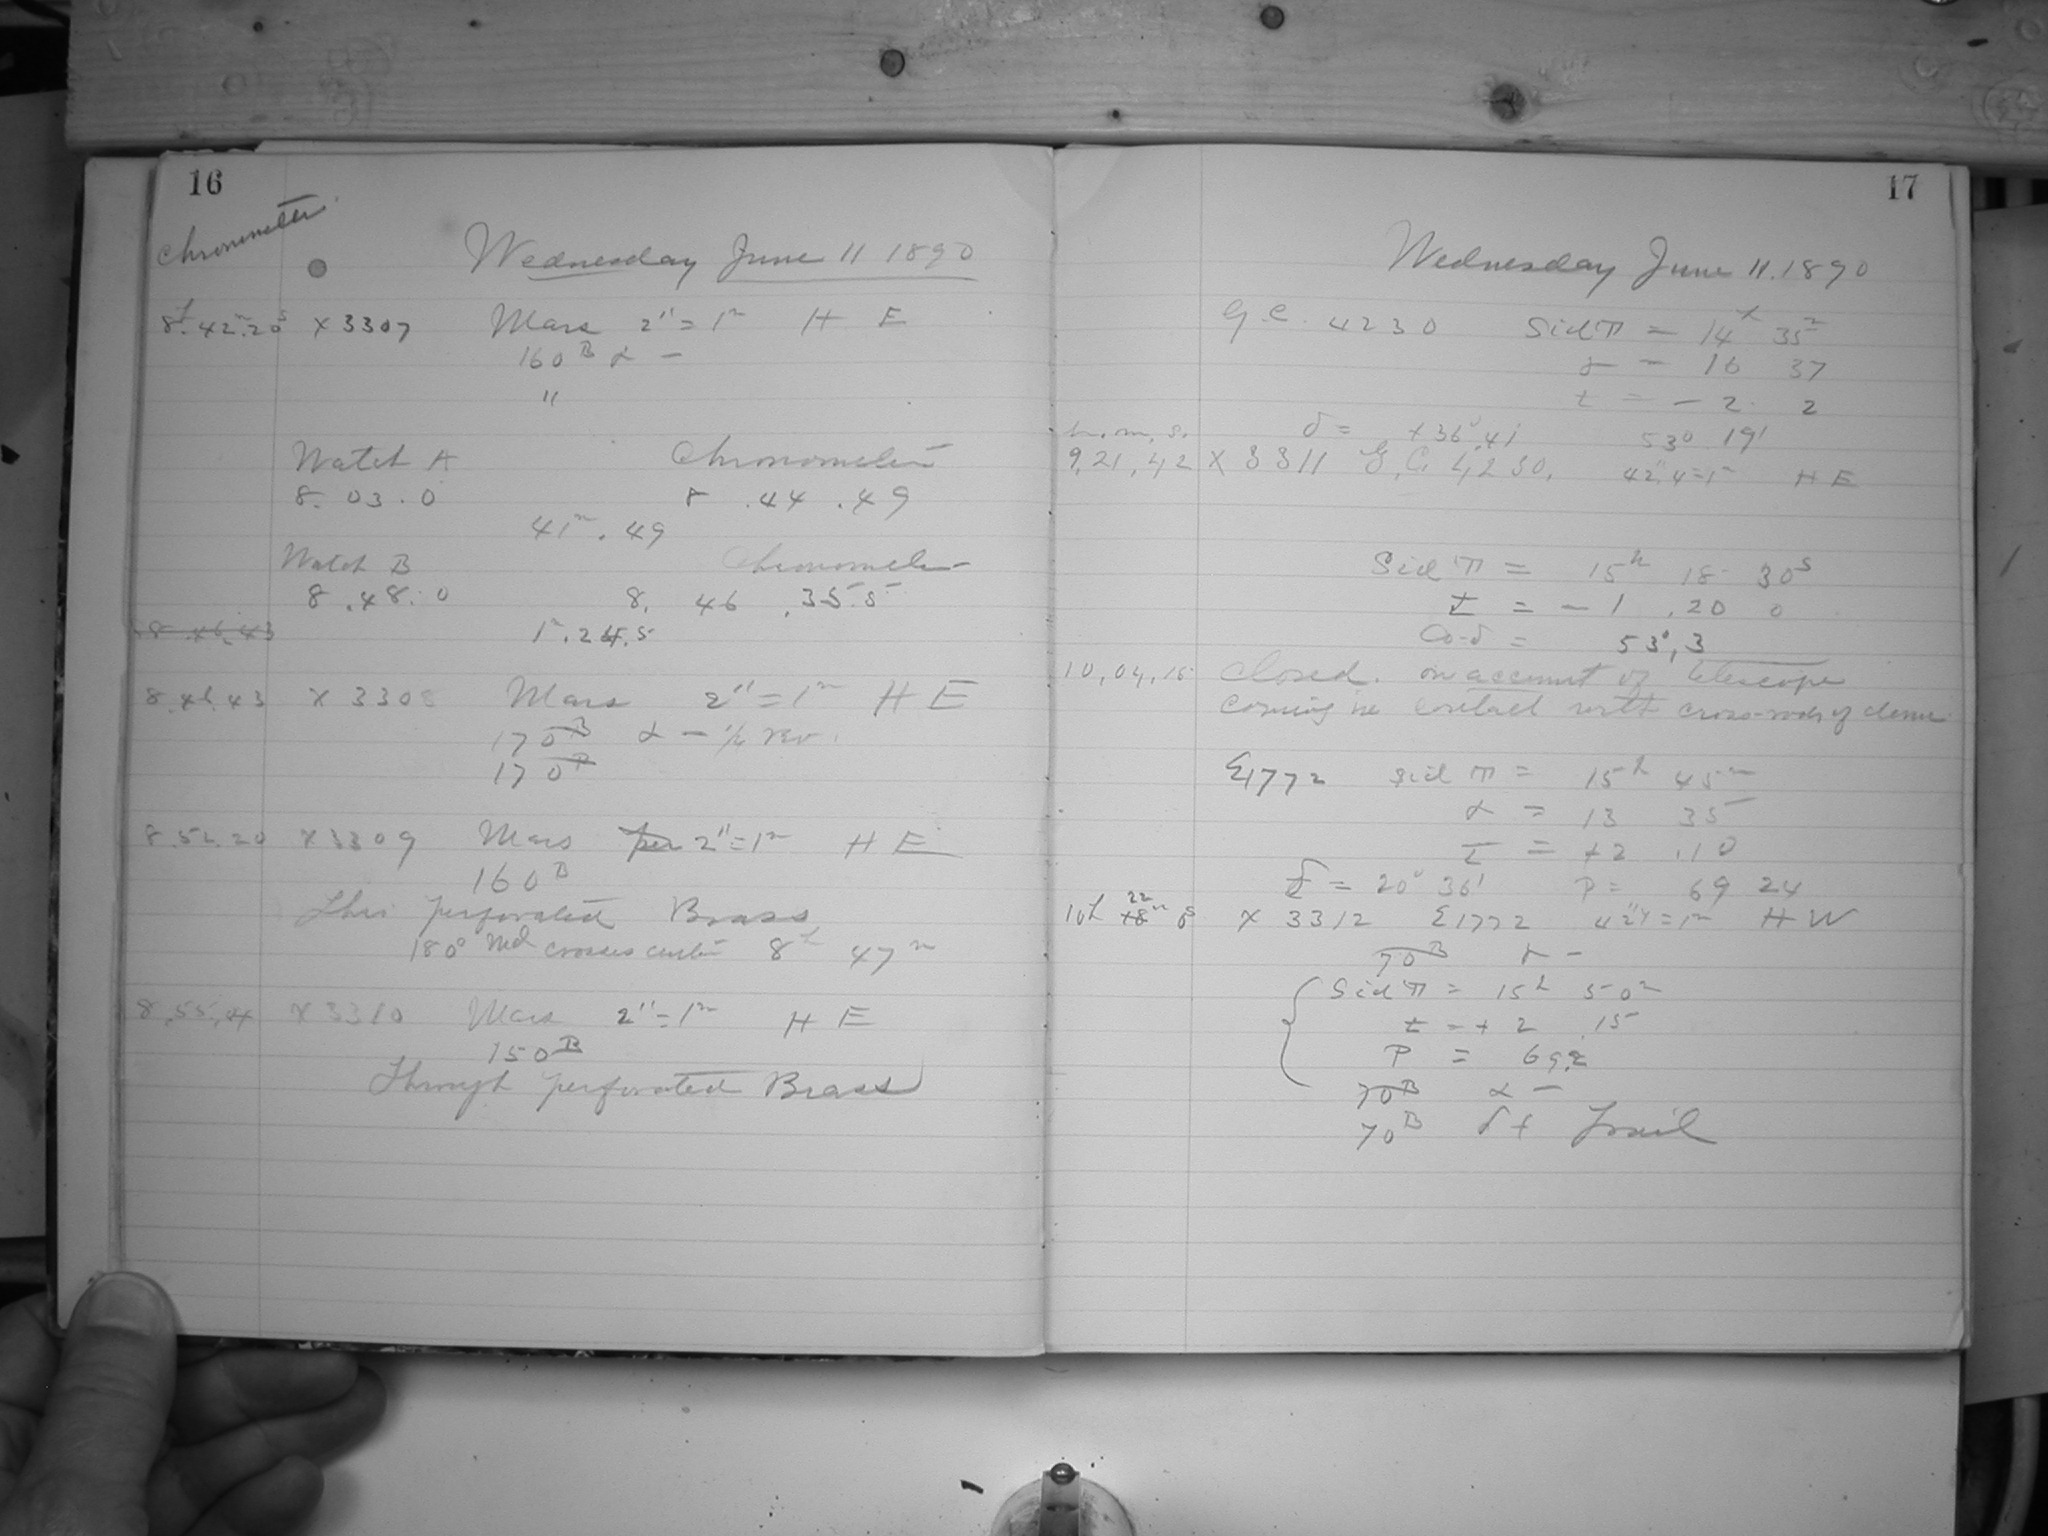 16
Chronometer
Wednesday June 11 1890
8h.42m.20s X 3307 Mars 2"=1m H E
160B α -
"
Watch A Chronometer
8. 03. 0 8 .44 .49
41m. 49
Watch B Chronometer
8 .48. 0 8. 46 .35.5
8.46.43 1m.24.5
8.46.43 X 3308 Mars 2"=1m H E
170B α - 1/4 rev.
170B
8.52.20 X 3309 Mars per 2"=1m H E
160B
Thro perforated Brass
180° Md crosses center 8h 47m
8.55.4 X 3310 Mars 2"=1m H E
150B
Through perforated Brass
17
Wednesday June 11. 1890
G.C. 4230 Sid T = 14h 35m
α = 16 37
t = - 2 2
h. m. s. δ = +36°.41' 53° 19'
9,21,42 X 3311 G.C. 4230. 42".4=1m H E
Sid T = 15h 18 30s
t = - 1 .20 0
Co-δ = 53°.3
10,04,15 Closed. on account of telescope
coming in contact with cross-rods of dome
Σ1772 Sid T = 15h 45m
α = 13 35
t = +2 .10
δ = 20° 36' P = 69 24
10h 18 22m 8s X 3312 Σ1772 42"4=1m H W
70B α -
Sid T = 15h 50m
t = + 2 15
P = 69.2
70B α -
70B δ + Trail